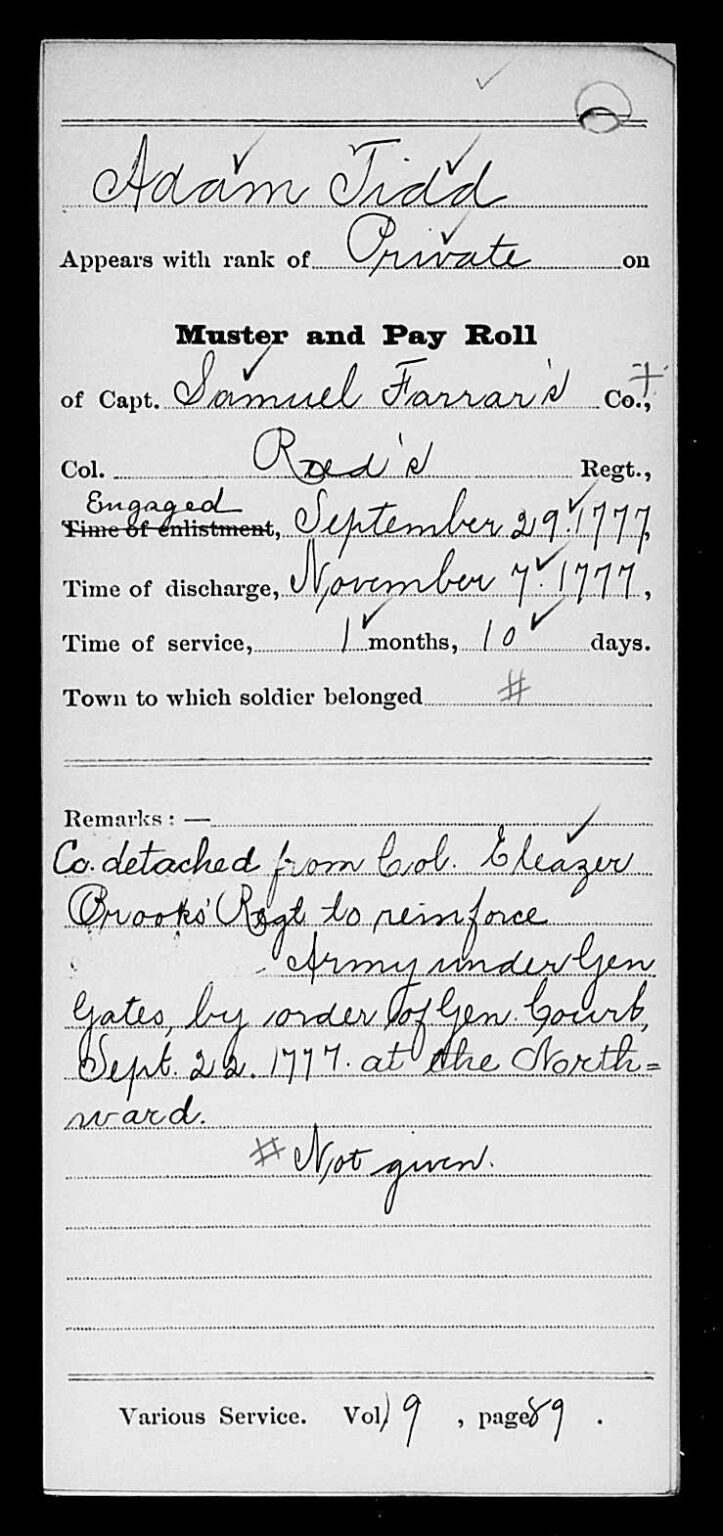 Adam Tidd
Appears with rank of Private on
Muster and Pay Roll
of Capt. Samuel Farrar's Co., +
Col. Reed's Regt.,
Engaged
Time of enlistment, September 29. 1777,
Time of discharge, November 7. 1777,
Time of service, 1 months, 10 days.
Town to which soldier belonged #
Remarks: —
Co. detached from Col. Eleazer
Brooks' Regt to reinforce
Army under Gen
Gates, by order of Gen. Court,
Sept. 22. 1777. at the North=
ward.
# Not given.
Various Service. Vol 19, page 89.